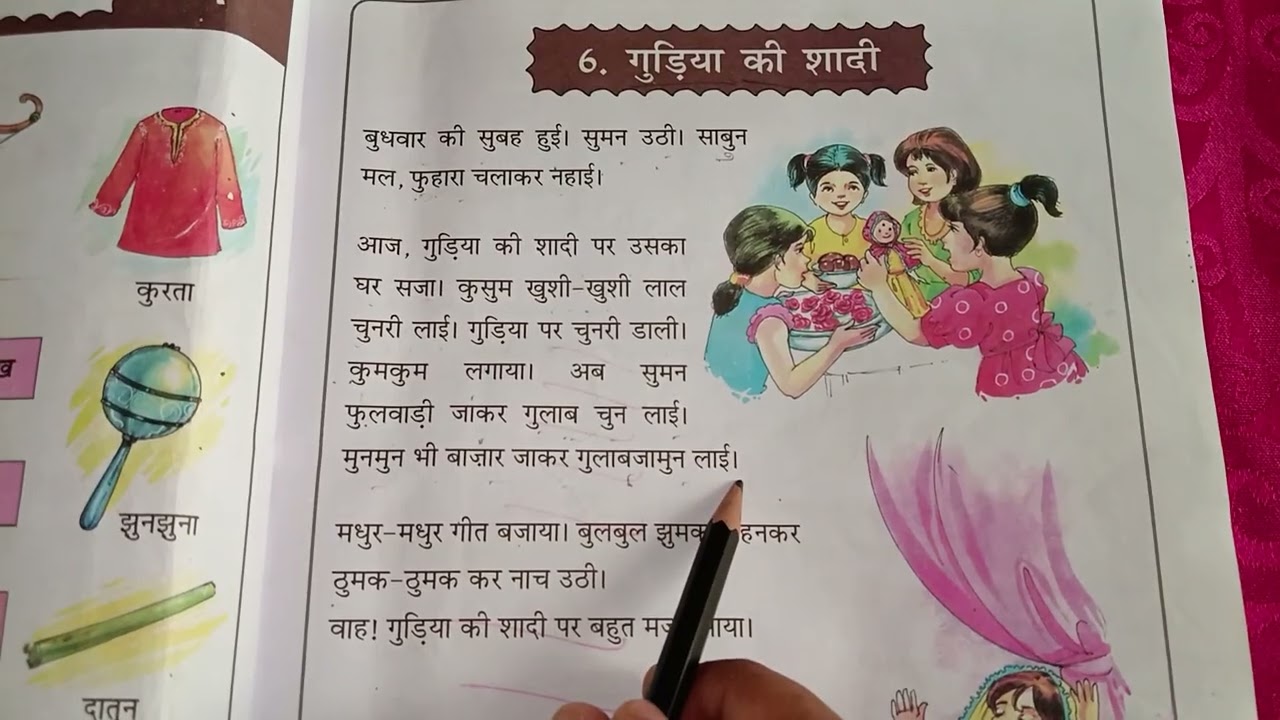 कुरता
ख
झुनझुना
दातुन
6. गुड़िया की शादी
बुधवार की सुबह हुई। सुमन उठी। साबुन
मल, फुहारा चलाकर नहाई।
आज, गुड़िया की शादी पर उसका
घर सजा। कुसुम खुशी-खुशी लाल
चुनरी लाई। गुड़िया पर चुनरी डाली।
कुमकुम लगाया। अब सुमन
फुलवाड़ी जाकर गुलाब चुन लाई।
मुनमुन भी बाजार जाकर गुलाबजामुन लाई।
मधुर-मधुर गीत बजाया। बुलबुल
ठुमक-ठुमक कर नाच उठी।
वाह! गुड़िया की शादी पर बहुत